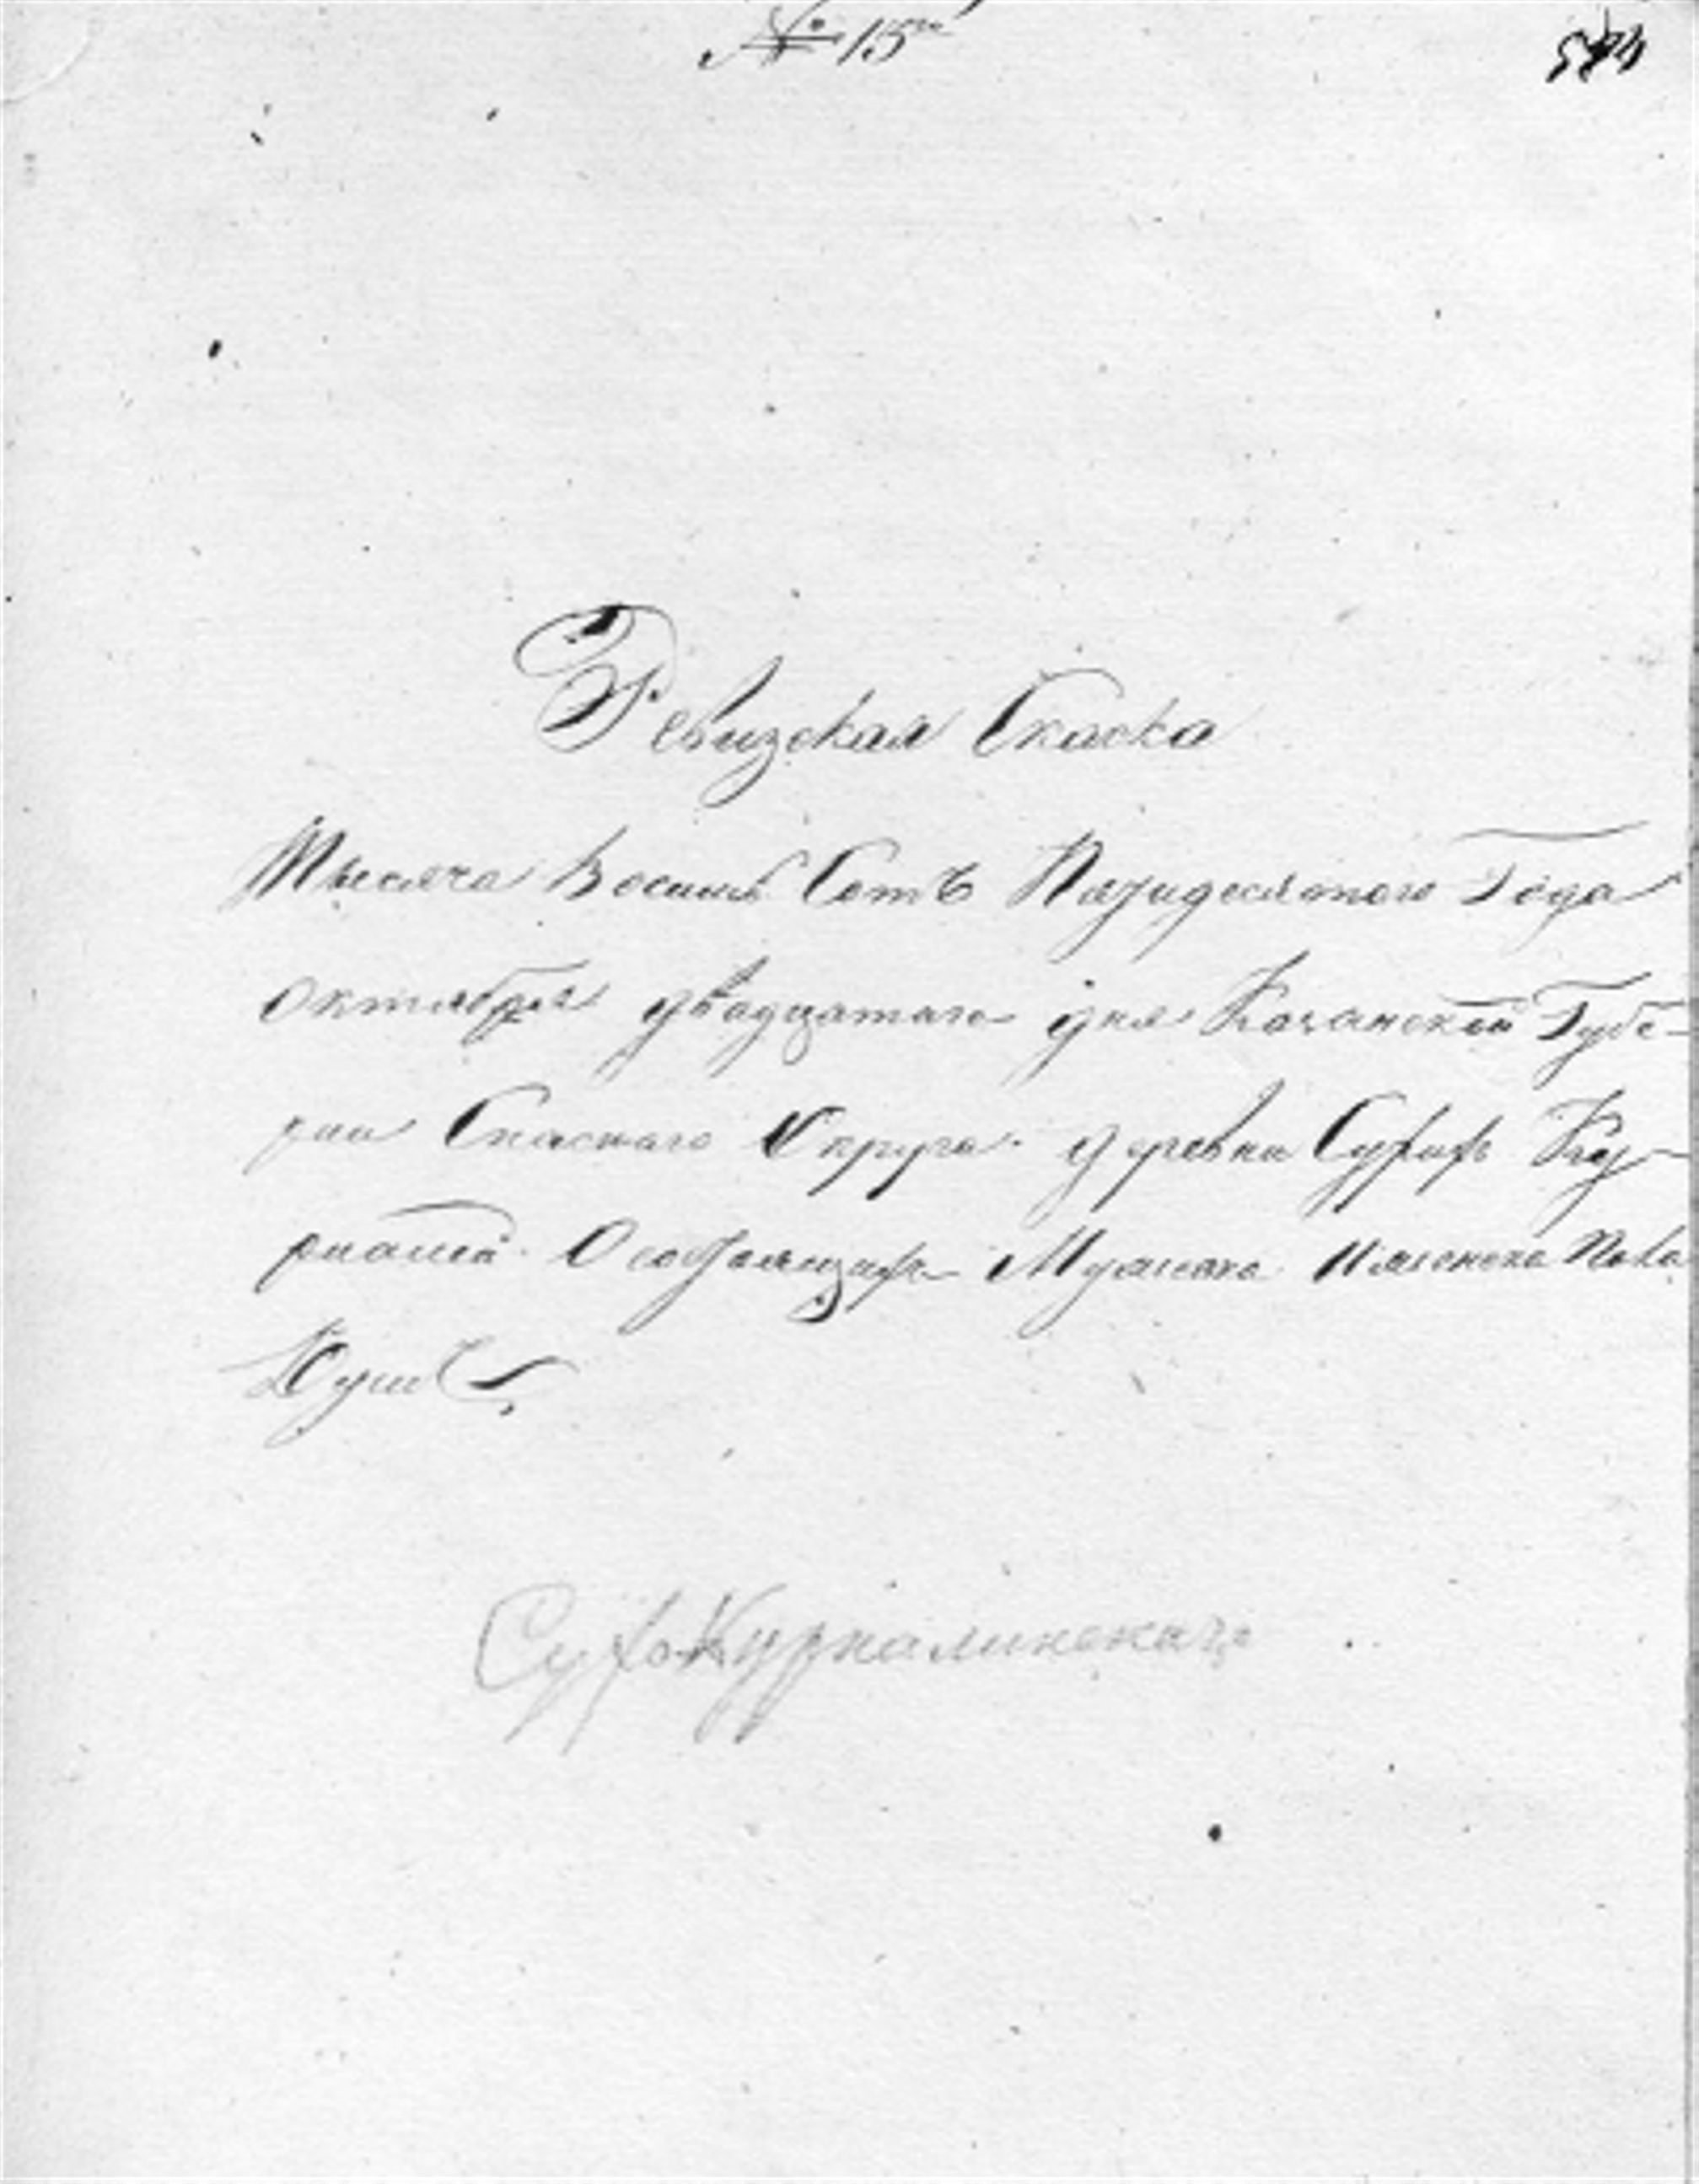 № 15
Ревизская Скаска
Тысяча Восимь Сотъ Пятидесятого Года
октября двадцатаго дня Казанской Губе-
рни Спаскаго Округа деревни Сухихъ Кур-
налей О состоящихъ Мужеска и женска пола
Душъ
Сухо Курналинскаго